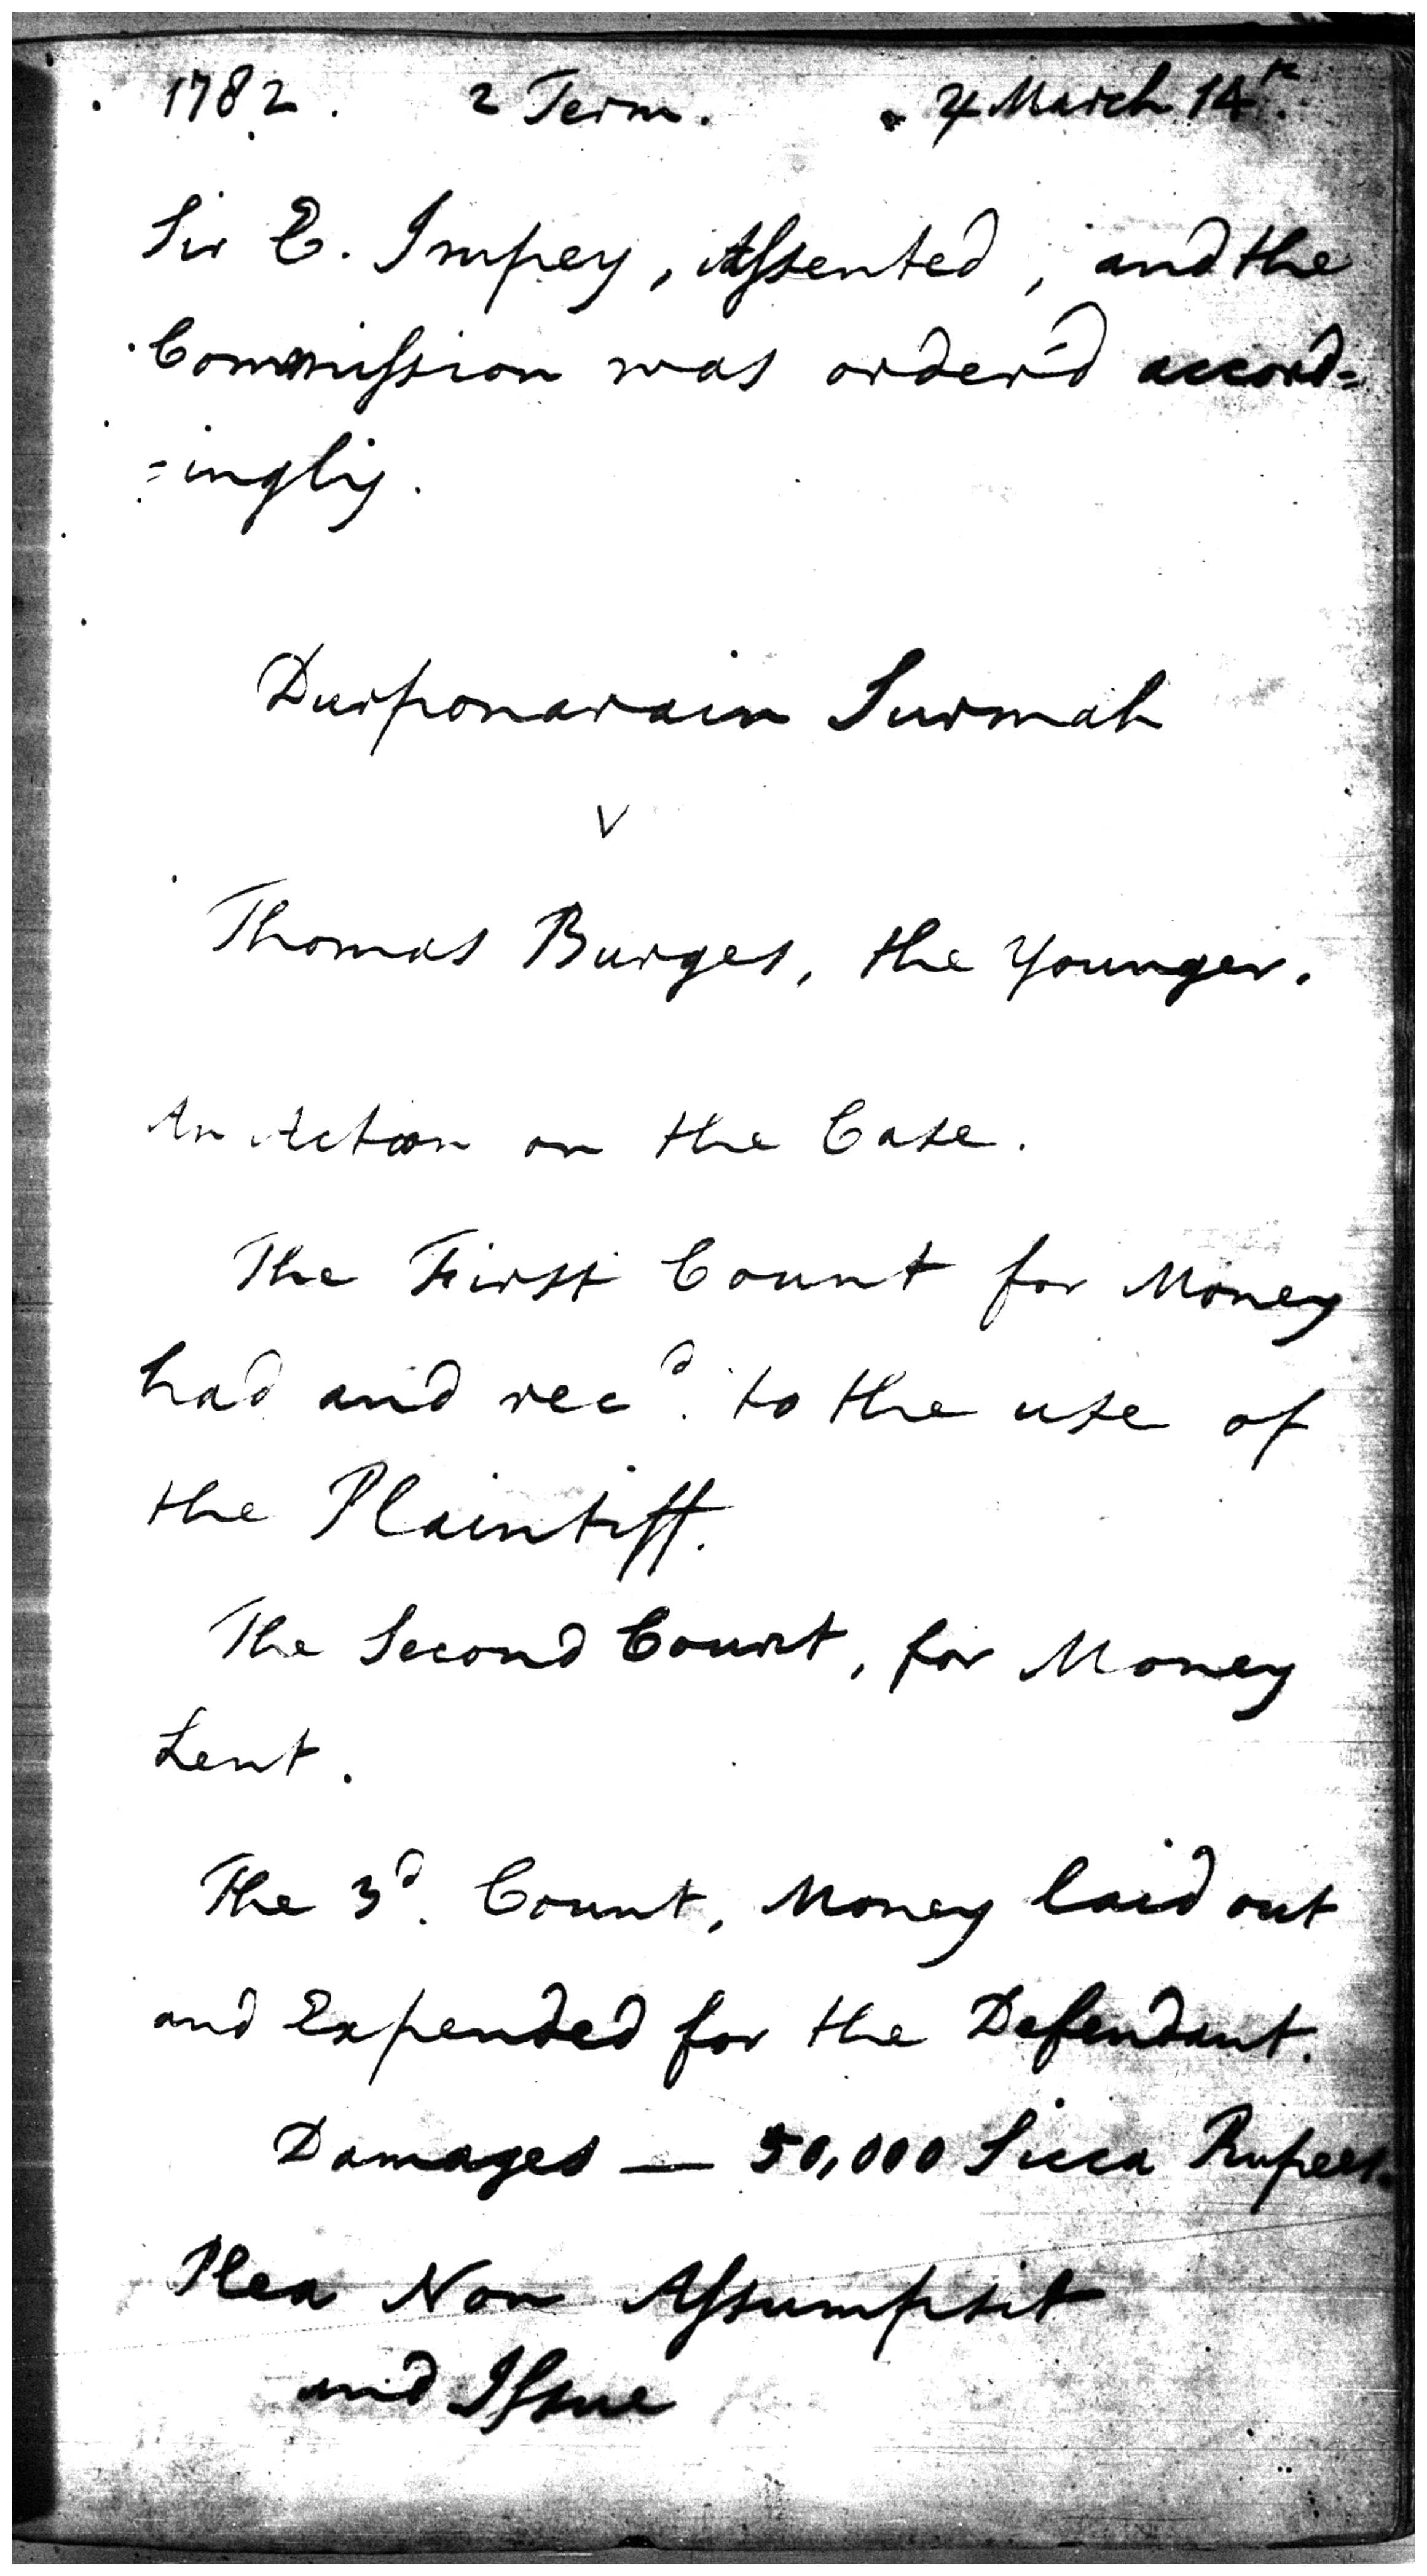 1782. 2 Term. ♃ March 14th.
Sir E. Impey, Assented, and the
Commission was order'd accord=
=ingly.
Durponarain Surmah
v
Thomas Burges, the Younger.
An Action on the Case.
The First Count for Money
had and recd. to the use of
the Plaintiff.
The Second Count, for Money
Lent.
The 3d. Count, Money laid out
and Expended for the Defendant.
Damages — 50,000 Sicca Rupees.
Plea Non Assumpsit
and Issue